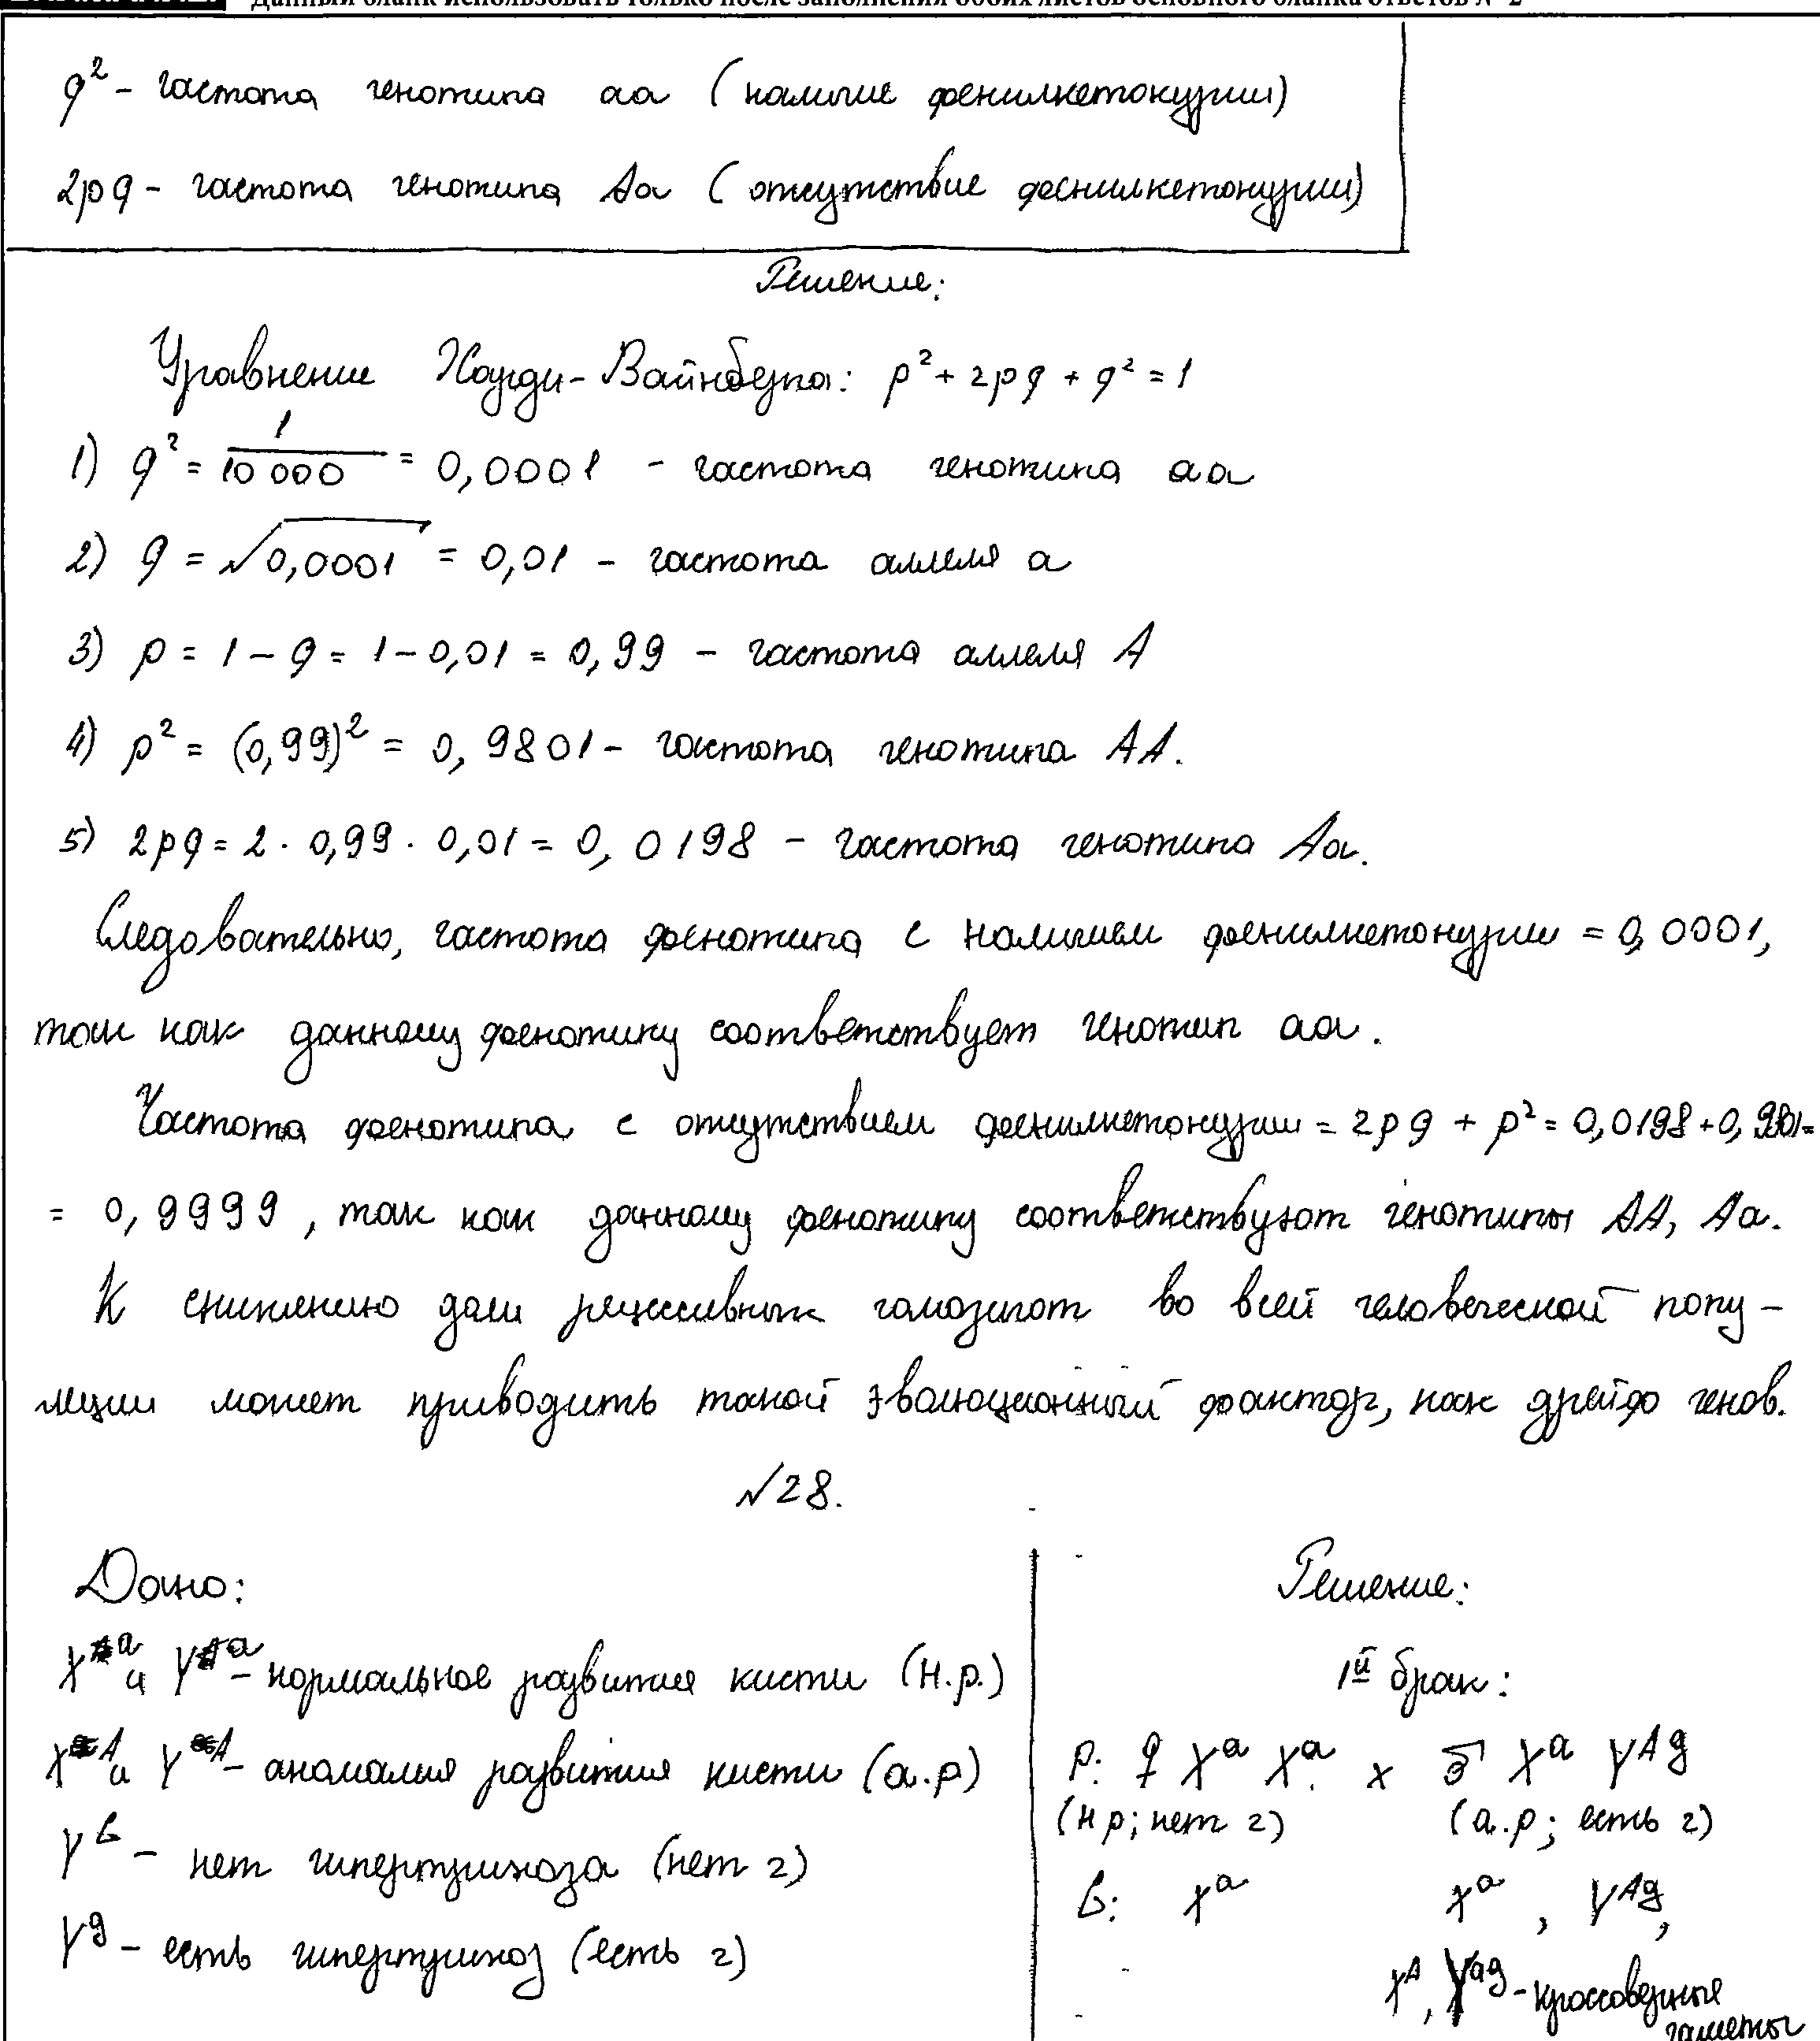 Данный бланк использовать только после заполнения обоих листов основного бланка ответов № 2
q² - частота генотипа аа (наличие фенилкетонурии)
2pq - частота генотипа Аа (отсутствие фенилкетонурии)
Решение:
Уравнение Харди-Вайнберга: p² + 2pq + q² = 1
1) q² = 1/10 000 = 0,0001 - частота генотипа аа
2) q = √0,0001 = 0,01 - частота аллеля а
3) p = 1 - q = 1 - 0,01 = 0,99 - частота аллеля А
4) p² = (0,99)² = 0,9801 - частота генотипа АА.
5) 2pq = 2 · 0,99 · 0,01 = 0,0198 - частота генотипа Аа.
Следовательно, частота фенотипа с наличием фенилкетонурии = 0,0001,
так как данному фенотипу соответствует генотип аа.
Частота фенотипа с отсутствием фенилкетонурии = 2pq + p² = 0,0198 + 0,9801 =
= 0,9999, так как данному фенотипу соответствуют генотипы АА, Аа.
К снижению доли рецессивных гомозигот во всей человеческой попу-
ляции может приводить такой эволюционный фактор, как дрейф генов.
№28.
Дано:
Xᵃ и Yᵃ - нормальное развитие кисти (н.р.)
Xᴬ и Yᴬ - аномалия развития кисти (а.р)
Yᴳ - нет гипертрихоза (нет г)
Yᵍ - есть гипертрихоз (есть г)
Решение:
1й брак:
P: ♀ Xᵃ Xᵃ × ♂ Xᵃ Yᴬᵍ
(н р; нет г) (а.р; есть г)
G: Xᵃ Xᵃ, Yᴬᵍ,
Xᴬ, Yᵃᵍ - кроссоверные
гаметы